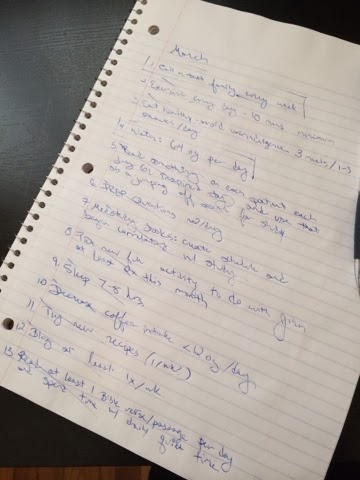 March
1. Call/text family every week
2. Exercise every day - 10 mins minimum
3. Eat healthy - avoid overindulgence 3 meals/1-2
snacks/day
4. Water: 64 oz per day
5. Read something on each patient each
day for inspired day and use that
as a jumping off point for study
6. Questions no/day
7. Mentoring books: create schedule and
begin completing w/ study
8. Try new fun activity to do with Finn
at least 2x this month
9. Sleep 7-8 hrs
10. Decrease coffee intake <12 oz/day
11. Try new recipes (1/wk)
12. Blog at least 1x/wk
13. Read at least 1 Bible verse/passage per day
and spend time w/ daily quiet time